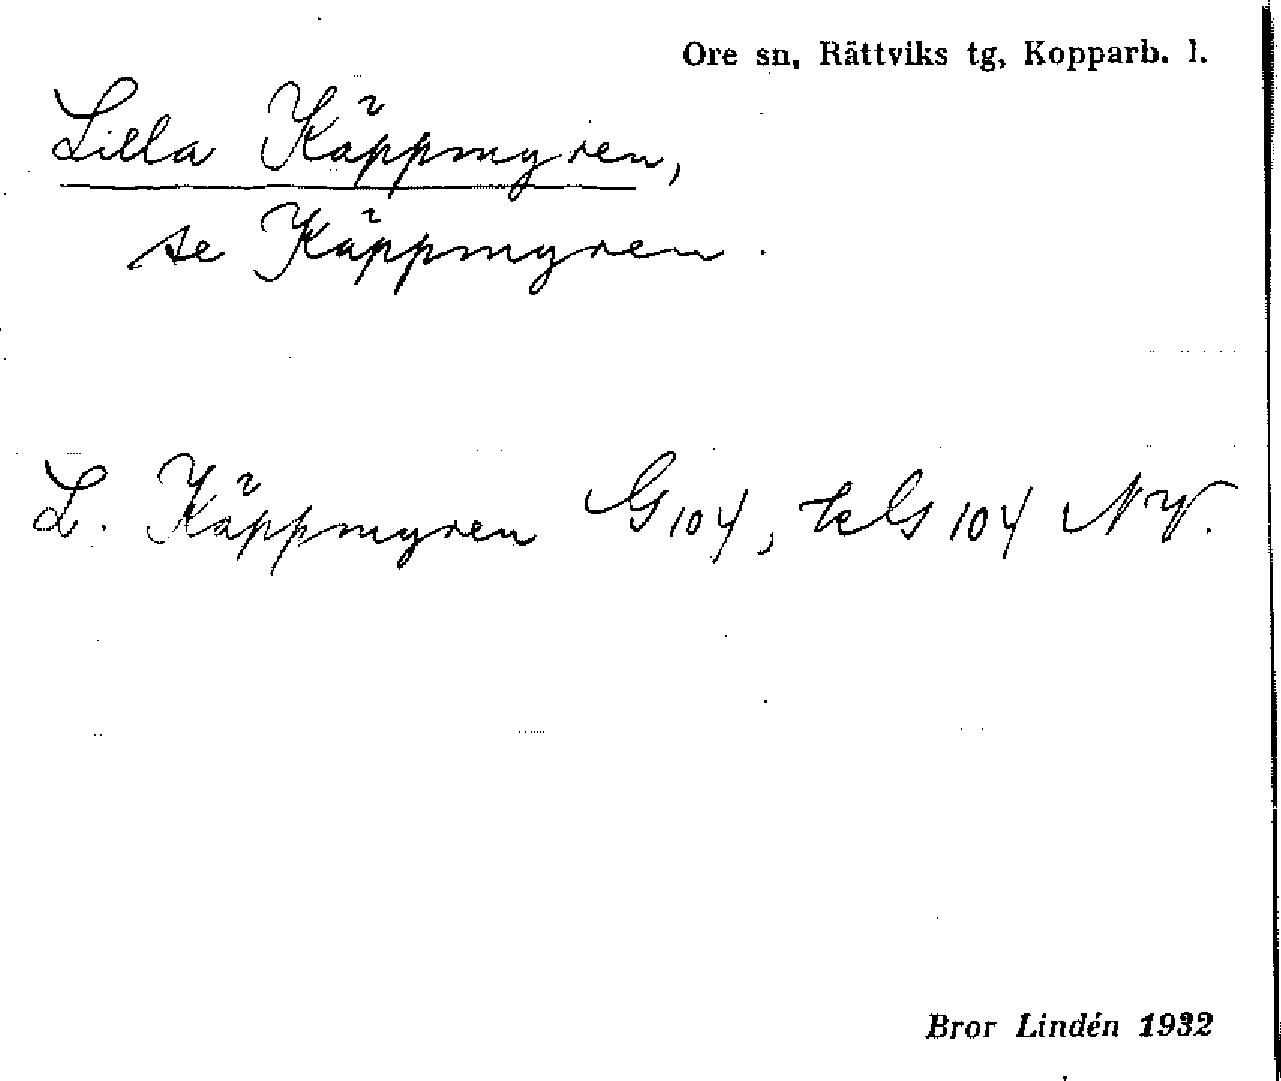 Ore sn, Rättviks tg, Kopparb. l.
Lilla Käppmyren,
se Käppmyren.
L. Käppmyren G 104, kG 104 NV.
Bror Lindén 1932